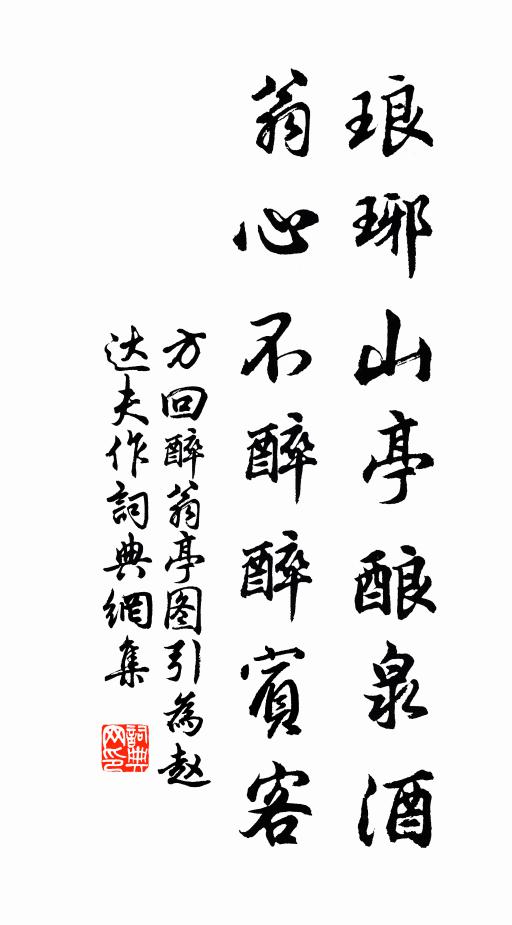 琅琊山亭酿泉酒
翁心不醉醉賓客
方回醉翁亭图引為赵
达夫作詞典網集
詞典網印